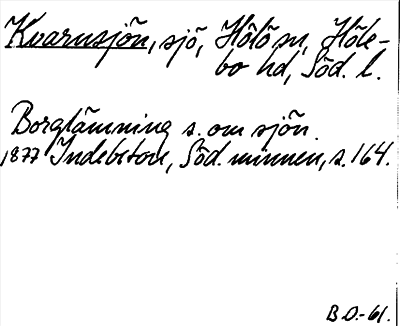 Kvarnsjön, sjö, Hölö sn, Höle-
bo hd, Söd. l.
Borglämning s. om sjön.
1877 Indebetou, Söd. minnen, s. 164.
B.D.-61.